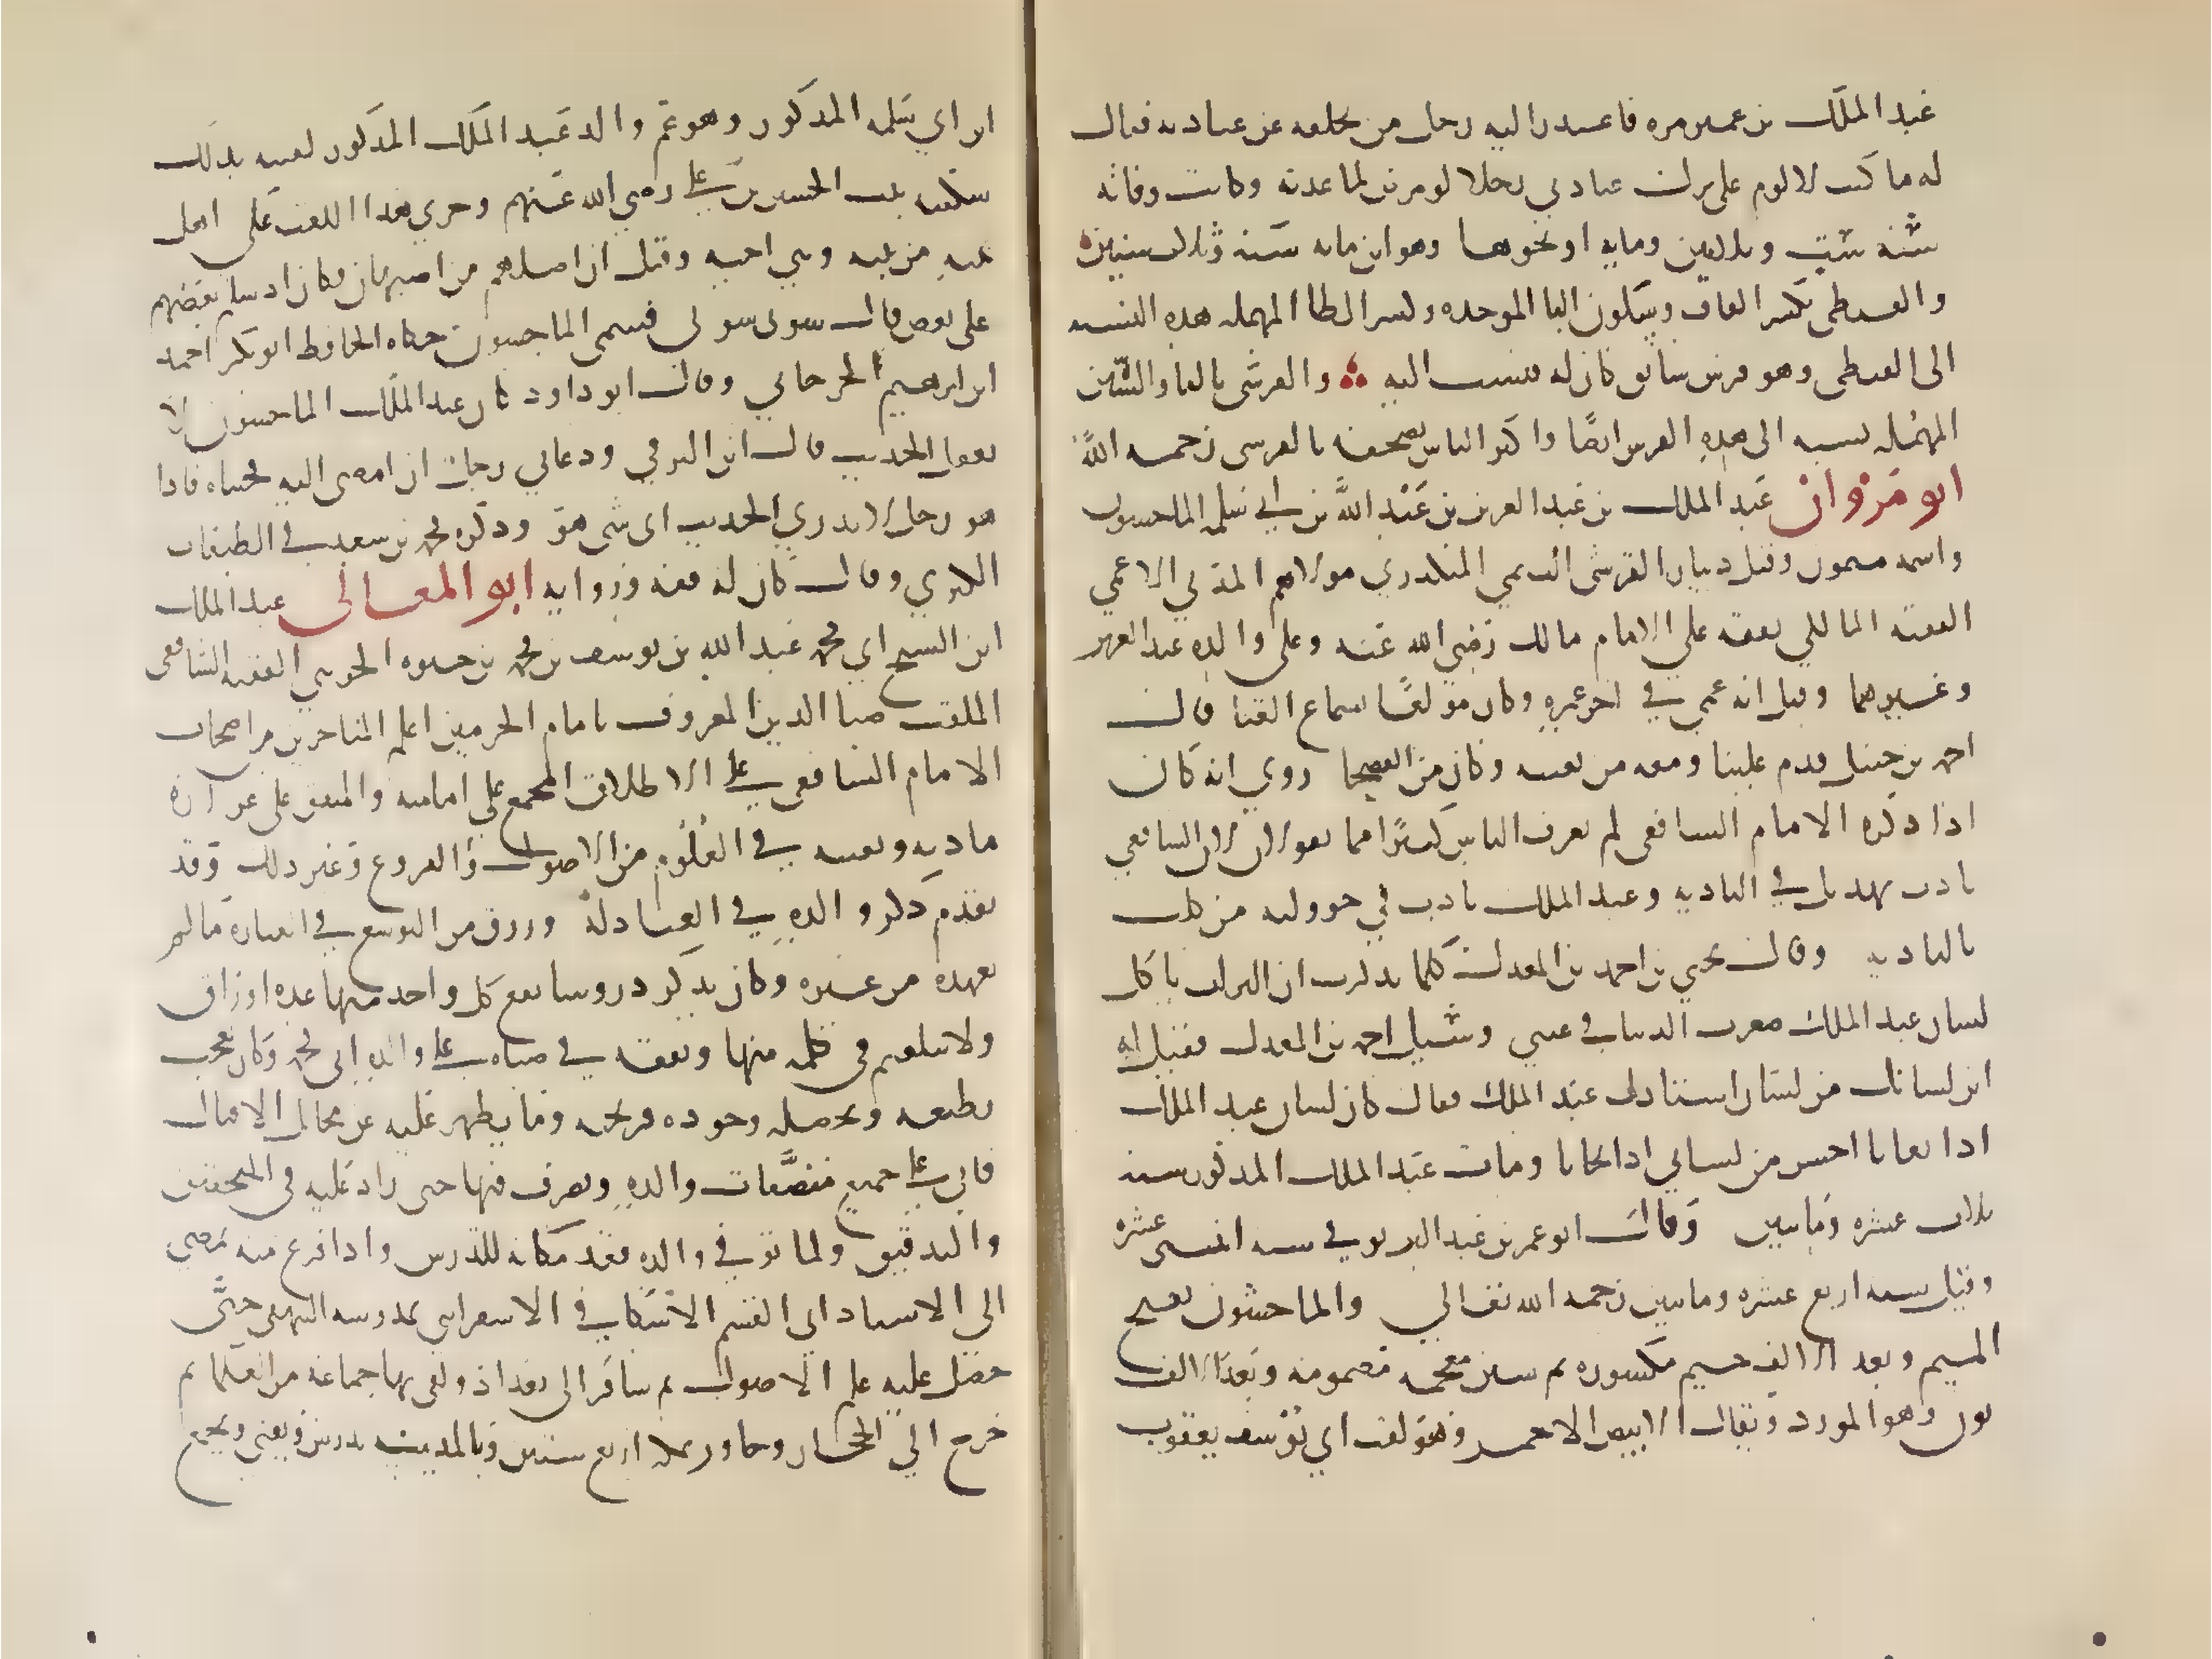 عبد الملك بن عمير مره فاعتذر اليه رجل من تخلفه عن عيادته فقال
له ما كنت لالوم على ترك عيادتي رجلا لو مرض لما عدته وكانت وفاته
سنة ست وثلاثين ومايه او نحوها وهو ابن مايه سنة وثلاث سنين
والقبطي بكسر القاف وسكون البا الموحده وكسر الطا المهمله هذه النسبه
الى القبطي وهو فرس سابق كان له فنسب اليه والفرسي بالفا والسين
المهمله نسبه الى هذه الفرس ايضا واكثر الناس يصحفه بالقرشي رحمه الله
ابو مروان عبد الملك بن عبد العزيز بن عبد الله بن ابي سلمه الماجشون
واسمه ميمون وقيل دينار القرشي التيمي المنكدري مولاهم المدني الاعمي
الفقيه المالكي تفقه علي الامام مالك رضي الله عنه وعلى والده عبد العزيز
وغيرهما وقيل انه عمي في اخر عمره وكان مولعا بسماع الغنا قال
احمد بن حنبل قدم علينا ومعه من يغنيه وكان من الفصحا روي انه كان
اذا ذكره الامام الشافعي لم يعرف الناس كثيرا مما يقولان لان الشافعي
تادب بهذيل في الباديه وعبد الملك تادب في خوولته من كلب
بالباديه وقال يحيي بن احمد بن المعدل كلما تذكرت ان التراب ياكل
لسان عبد الملك صغرت الدنيا في عيني وسيل احمد بن المعدل فقيل له
اين لسانك من لسان استاذك عبد الملك فقال كان لسان عبد الملك
اذا تعايا احسن من لساني اذا تحايا ومات عبد الملك المذكور سنه
ثلاث عشره ومايتين وقال ابو عمر بن عبد البر توفي سنه اثنتي عشره
وقيل سنه اربع عشره ومايتين رحمه الله تعالي والماجشون بفتح
الميم وبعد الالف جيم مكسوره ثم شين معجمه مضمومه وبعدالالف
نون وهو المورد ويقال الابيض الاحمر وهو لقب ابي يوسف يعقوب
ابن ابي سلمه المذكور وهو عم والد عبد الملك المذكور لقبته بذلك
سكينه بنت الحسين بن علي رضي الله عنهم وجري هذا اللقب علي اهل
بيته من بنيه وبني اخيه وقيل ان اصلهم من اصبهان فكان اذ سلم بعضهم
على بعض قال سوني سوني فسمي الماجشون حكاه الحافظ ابو بكر احمد
ابن ابرهيم الجرجاني وقال ابو داود كان عبد الملك الماجشون لا
يعقل الحديث قال ابن البرقي ودعاني رجل ان امضي اليه فجيناه فاذا
هو رجل لا يدري الحديث اى شي هو وذكره محمد بن سعد في الطبقات
الكبري وقال كان له فقه وروايه ابو المعالى عبد الملك
ابن الشيخ ابي محمد عبد الله بن يوسف بن محمد بن حيويه الجويني الفقيه الشافعي
الملقب ضيا الدين المعروف بامام الحرمين اعلم المتاخرين من اصحاب
الامام الشافعي علي الاطلاق المجمع علي امامته والمتفق على غزارة
مادته وتفننه في العلوم من الاصول والفروع وغير ذلك وقد
تقدم ذكر والده في العبادلة ورزق من التوسع في العبارة ما لم
يعهد من غيره وكان يذكر دروسا يقع كل واحد منها عده اوراق
ولا يتلعثم في كلمه منها وتفقه في صباه علي والده ابي محمد وكان يعجب
بطبعه وتحصيله وجوده قريحته وما يظهر عليه من مخايل الاقبال
فاتي علي جميع مصنفات والده وتصرف فيها حتى زاد عليه في التحقيق
والتدقيق ولما توفي والده قعد مكانه للتدرس واذا فرغ منه مضي
الي الاستاد ابي القسم الاسكافي الاسفرايني بمدرسه البيهقي حتى
حصل عليه علم الاصول ثم سافر الى بغداد ولقي بها جماعة من العلما ثم
خرج الي الحجاز وجاور بمكه اربع سنين وبالمدينه يدرس ويفتي ويجمع